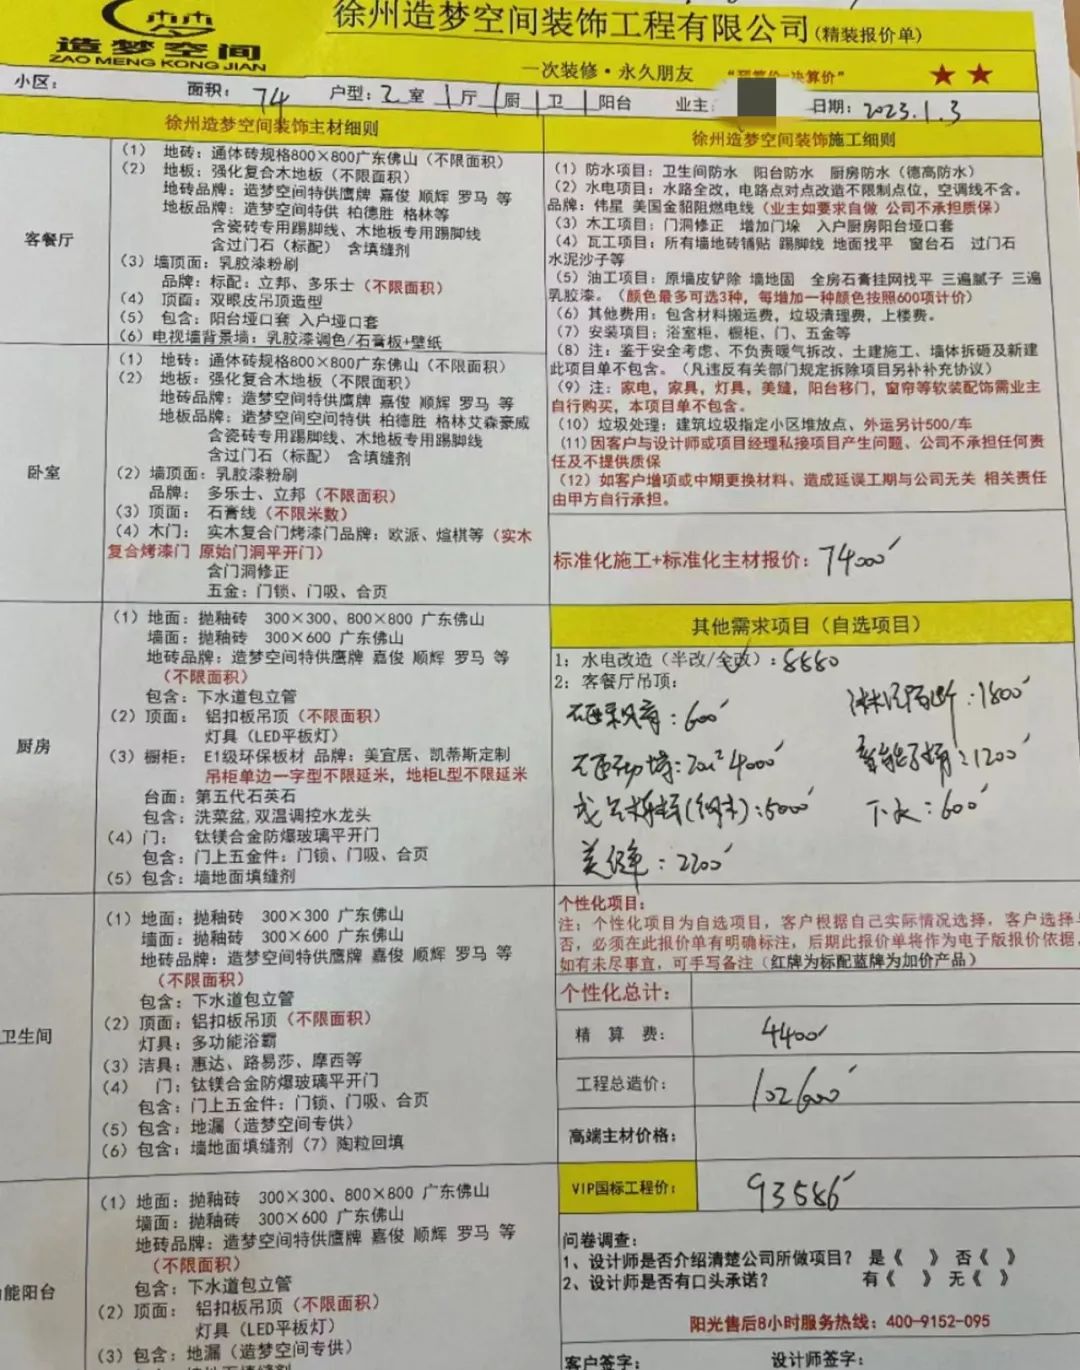 造梦空间
ZAO MENG KONG JIAN
徐州造梦空间装饰工程有限公司(精装报价单)
一次装修·永久朋友 “预算价=决算价”
小区: 面积: 74 户型: 2室1厅1厨1卫 阳台 业主: 日期: 2023.1.3
徐州造梦空间装饰主材细则
客餐厅
(1) 地砖: 通体砖规格800×800广东佛山(不限面积)
(2) 地板: 强化复合木地板(不限面积)
地砖品牌: 造梦空间特供鹰牌 嘉俊 顺辉 罗马 等
地板品牌: 造梦空间特供 柏德胜 格林等
含瓷砖专用踢脚线、木地板专用踢脚线
含过门石(标配) 含填缝剂
(3) 墙顶面: 乳胶漆粉刷
品牌: 标配: 立邦、多乐士(不限面积)
(4) 顶面: 双眼皮吊顶造型
(5) 包含: 阳台垭口套 入户垭口套
(6) 电视墙背景墙: 乳胶漆调色/石膏板+壁纸
卧室
(1) 地砖: 通体砖规格800×800广东佛山(不限面积)
(2) 地板: 强化复合木地板(不限面积)
地砖品牌: 造梦空间特供鹰牌 嘉俊 顺辉 罗马 等
地板品牌: 造梦空间空间特供 柏德胜 格林艾森豪威
含瓷砖专用踢脚线、木地板专用踢脚线
含过门石(标配) 含填缝剂
(2) 墙顶面: 乳胶漆粉刷
品牌: 多乐士、立邦(不限面积)
(3) 顶面: 石膏线(不限米数)
(4) 木门: 实木复合门烤漆门品牌: 欧派、煊棋等(实木
复合烤漆门 原始门洞平开门)
含门洞修正
五金: 门锁、门吸、合页
厨房
(1) 地面: 抛釉砖 300×300、800×800 广东佛山
墙面: 抛釉砖 300×600 广东佛山
地砖品牌: 造梦空间特供鹰牌 嘉俊 顺辉 罗马 等
(不限面积)
包含: 下水道包立管
(2) 顶面: 铝扣板吊顶(不限面积)
灯具(LED平板灯)
(3) 橱柜: E1级环保板材 品牌: 美宜居、凯蒂斯定制
吊柜单边一字型不限延米, 地柜L型不限延米
台面: 第五代石英石
包含: 洗菜盆, 双温调控水龙头
(4) 门: 钛镁合金防爆玻璃平开门
包含: 门上五金件: 门锁、门吸、合页
(5) 包含: 墙地面填缝剂
卫生间
(1) 地面: 抛釉砖 300×300 广东佛山
墙面: 抛釉砖 300×600 广东佛山
地砖品牌: 造梦空间特供鹰牌 嘉俊 顺辉 罗马 等
(不限面积)
包含: 下水道包立管
(2) 顶面: 铝扣板吊顶(不限面积)
灯具: 多功能浴霸
(3) 洁具: 惠达、路易莎、摩西等
(4) 门: 钛镁合金防爆玻璃平开门
包含: 门上五金件: 门锁、门吸、合页
(5) 包含: 地漏(造梦空间专供)
(6) 包含: 墙地面填缝剂(7) 陶粒回填
能阳台
(1) 地面: 抛釉砖 300×300、800×800 广东佛山
墙面: 抛釉砖 300×600 广东佛山
地砖品牌: 造梦空间特供鹰牌 嘉俊 顺辉 罗马 等
(不限面积)
包含: 下水道包立管
(2) 顶面: 铝扣板吊顶(不限面积)
灯具(LED平板灯)
(3) 包含: 地漏(造梦空间专供)
徐州造梦空间装饰施工细则
(1) 防水项目: 卫生间防水 阳台防水 厨房防水(德高防水)
(2) 水电项目: 水路全改, 电路点对点改造不限制点位, 空调线不含。
品牌: 伟星 美国金貂阻燃电线(业主如要求自做 公司不承担质保)
(3) 木工项目: 门洞修正 增加门垛 入户厨房阳台垭口套
(4) 瓦工项目: 所有墙地砖铺贴 踢脚线 地面找平 窗台石 过门石
水泥沙子等
(5) 油工项目: 原墙皮铲除 墙地固 全房石膏挂网找平 三遍腻子 三遍
乳胶漆。(颜色最多可选3种, 每增加一种颜色按照600项计价)
(6) 其他费用: 包含材料搬运费, 垃圾清理费, 上楼费。
(7) 安装项目: 浴室柜、橱柜、门、五金等
(8) 注: 鉴于安全考虑、不负责暖气拆改、土建施工、墙体拆砸及新建
此项目单不包含。(凡违反有关部门规定拆除项目另补补充协议)
(9) 注: 家电, 家具, 灯具, 美缝, 阳台移门, 窗帘等软装配饰需业主
自行购买, 本项目单不包含。
(10) 垃圾处理: 建筑垃圾指定小区堆放点、外运另计500/车
(11)因客户与设计师或项目经理私接项目产生问题、公司不承担任何责
任及不提供质保
(12) 如客户增项或中期更换材料、造成延误工期与公司无关 相关责任
由甲方自行承担。
标准化施工+标准化主材报价: 74000
其他需求项目(自选项目)
1: 水电改造(半改/全改): 8880
2: 客餐厅吊顶:
: 600 淋浴隔断: 1800
: 20m² 4000 : 1200
: 5000 下水: 600
美缝: 2200
个性化项目:
注: 个性化项目为自选项目, 客户根据自己实际情况选择, 客户选择
否, 必须在此报价单有明确标注, 后期此报价单将作为电子版报价依据,
如有未尽事宜, 可手写备注(红牌为标配蓝牌为加价产品)
个性化总计:
精算费: 4400
工程总造价: 102600
高端主材价格:
VIP国标工程价: 93586
问卷调查:
1、设计师是否介绍清楚公司所做项目? 是《 》 否《 》
2、设计师是否有口头承诺? 有《 》 无《 》
阳光售后8小时服务热线: 400-9152-095
客户签字: 设计师签字: